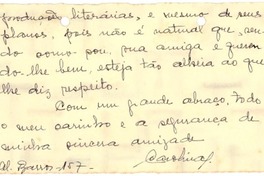 produção literárias, e mesmo de seus
planos, pois não é natural que, sen-
do como sou, sua amiga e queren
do-lhe bem, esteja tão alheia ao que
lhe diz respeito.
Com um grande abraço, todo
o meu carinho e a segurança de
minha sincera amizade
Carolina
Al. Barros - 157 -